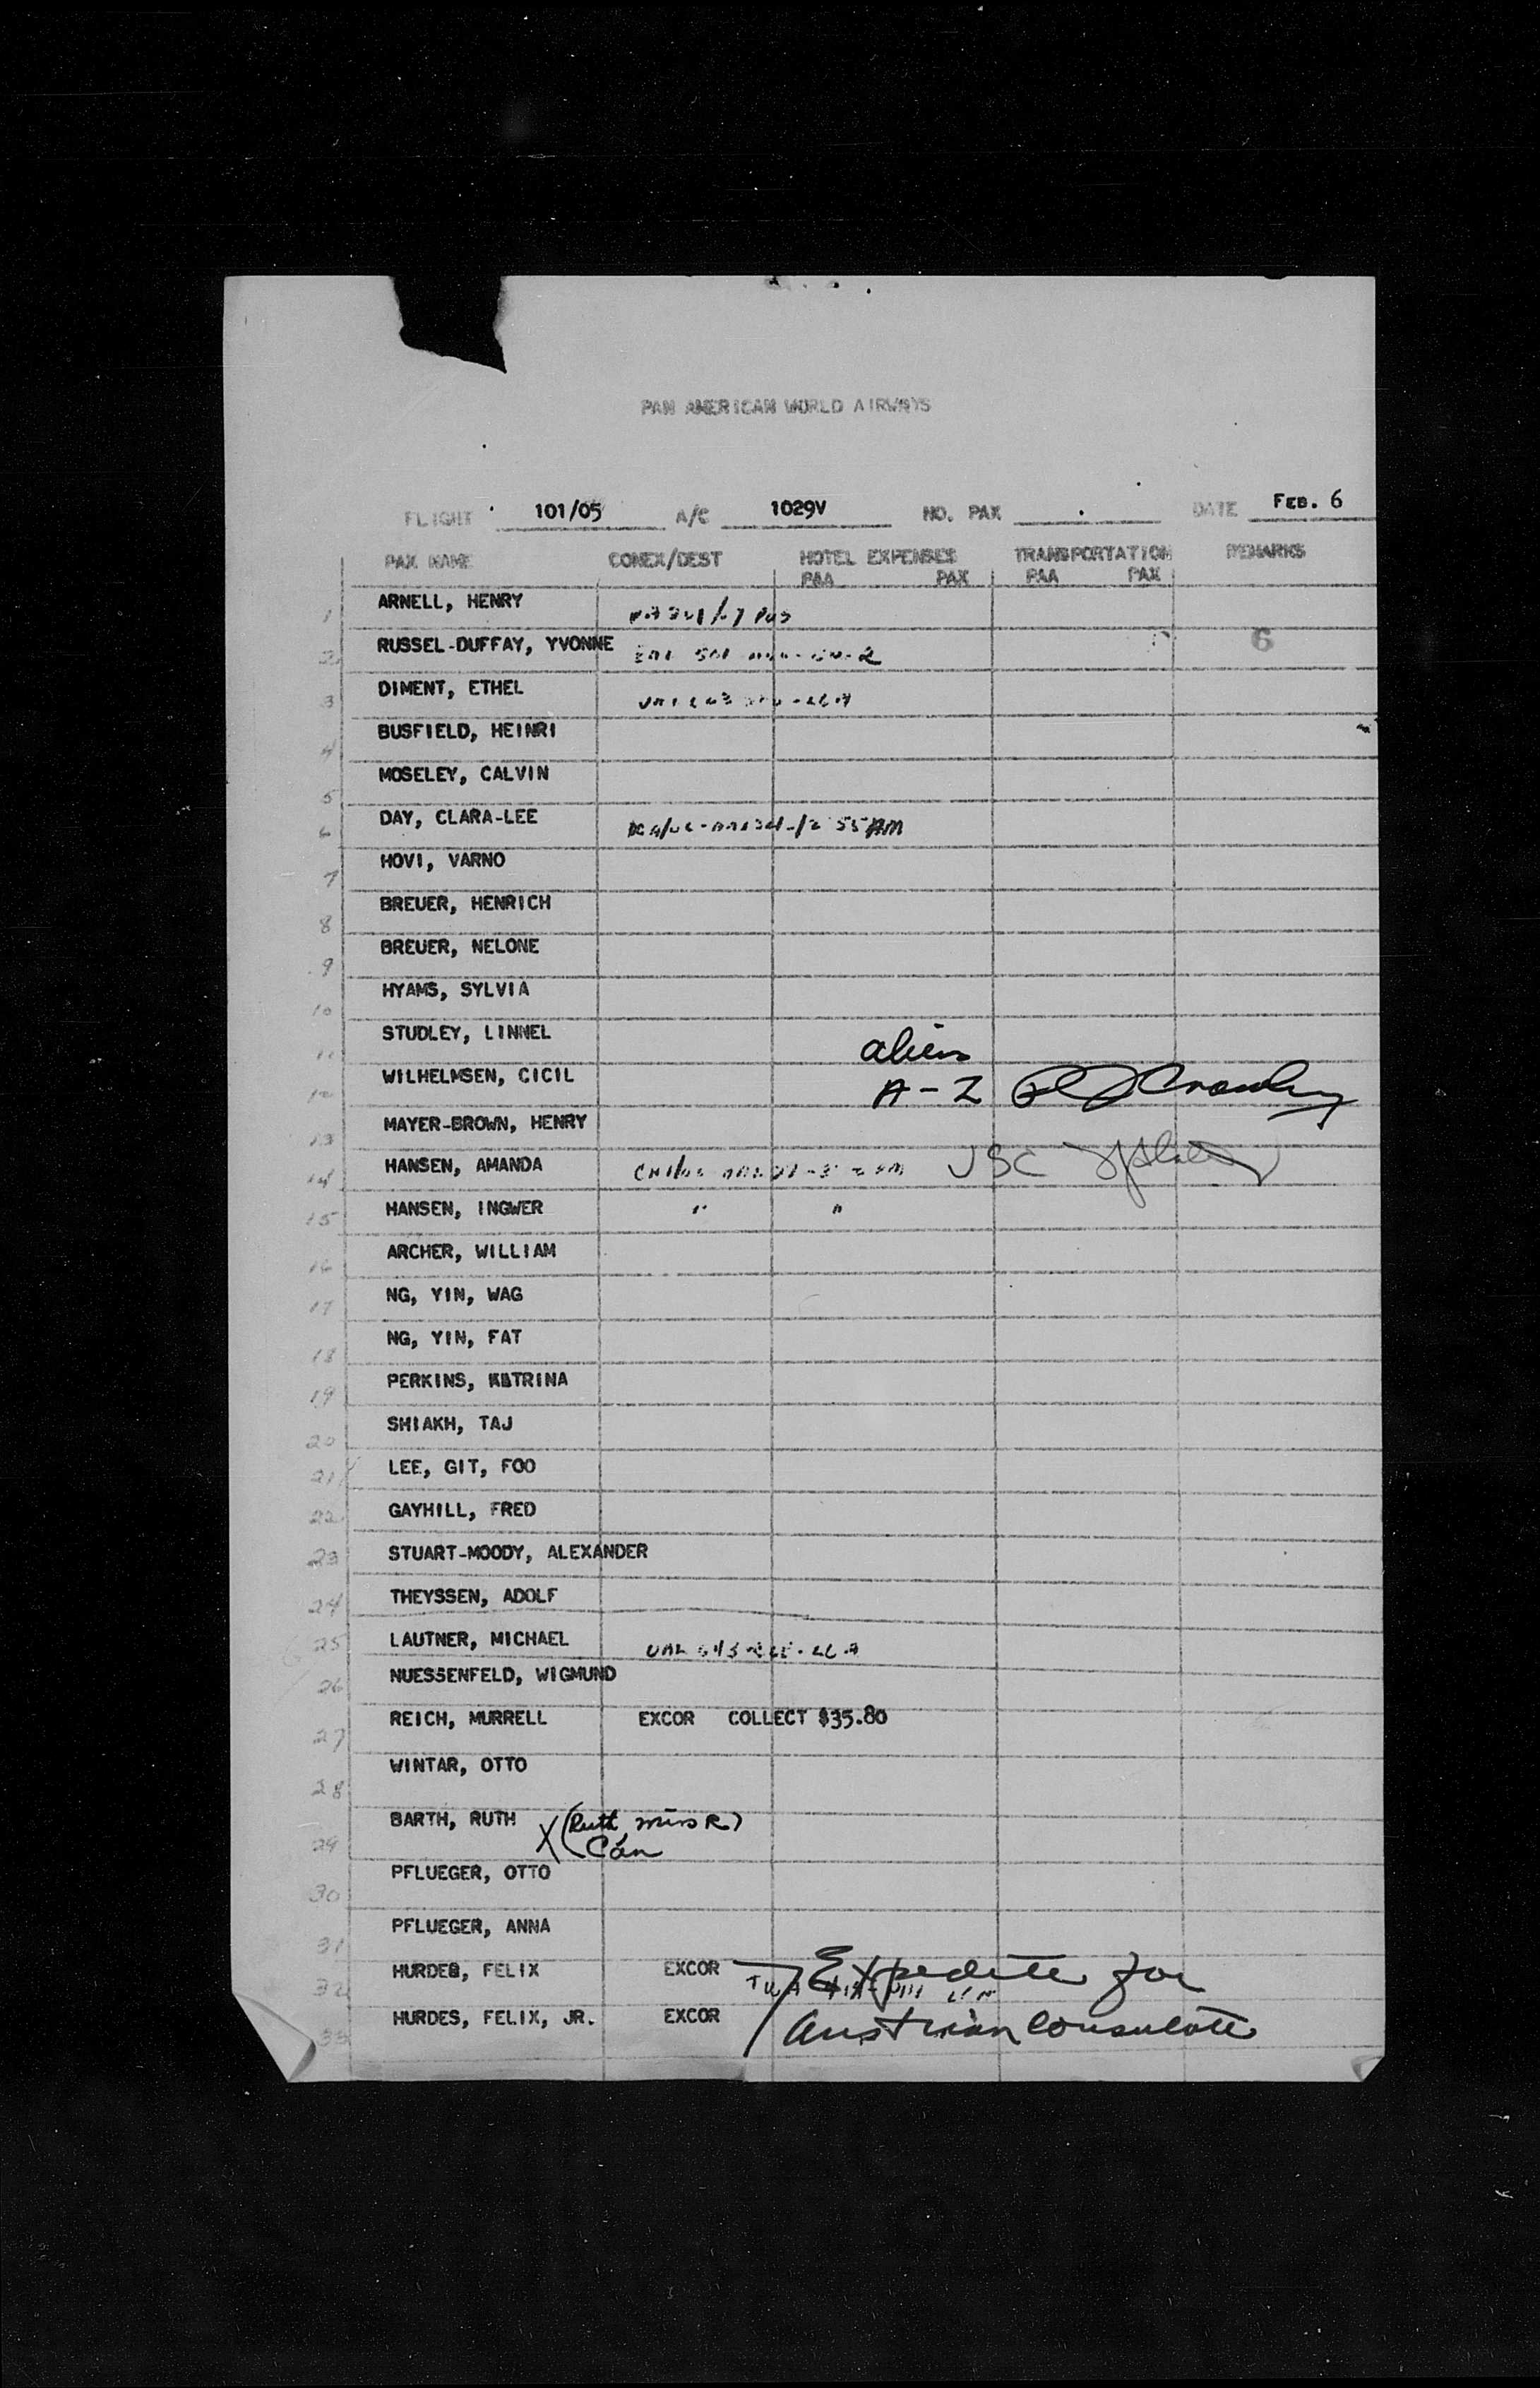 PAN AMERICAN WORLD AIRWAYS
FLIGHT 101/05 A/C 1029V NO. PAX DATE FEB. 6
PAX NAME CONEX/DEST HOTEL EXPENSES TRANSPORTATION REMARKS
PAA PAX PAA PAX
1 ARNELL, HENRY
2 RUSSEL-DUFFAY, YVONNE 6
3 DIMENT, ETHEL
4 BUSFIELD, HEINRI
5 MOSELEY, CALVIN
6 DAY, CLARA-LEE 55 AM
7 HOVI, VARNO
8 BREUER, HENRICH
9 BREUER, NELONE
10 HYAMS, SYLVIA
11 STUDLEY, LINNEL aliens
12 WILHELMSEN, CICIL A-Z
13 MAYER-BROWN, HENRY
14 HANSEN, AMANDA USC
15 HANSEN, INGWER " "
16 ARCHER, WILLIAM
17 NG, YIN, WAG
18 NG, YIN, FAT
19 PERKINS, KATRINA
20 SHIAKH, TAJ
21 LEE, GIT, FOO
22 GAYHILL, FRED
23 STUART-MOODY, ALEXANDER
24 THEYSSEN, ADOLF
25 LAUTNER, MICHAEL UAL
26 NUESSENFELD, WIGMUND
27 REICH, MURRELL EXCOR COLLECT $35.80
28 WINTAR, OTTO
29 BARTH, RUTH X (Ruth Miss R)
Can
30 PFLUEGER, OTTO
31 PFLUEGER, ANNA
32 HURDES, FELIX EXCOR Expedite for
TWA
33 HURDES, FELIX, JR. EXCOR Austrian Consulate